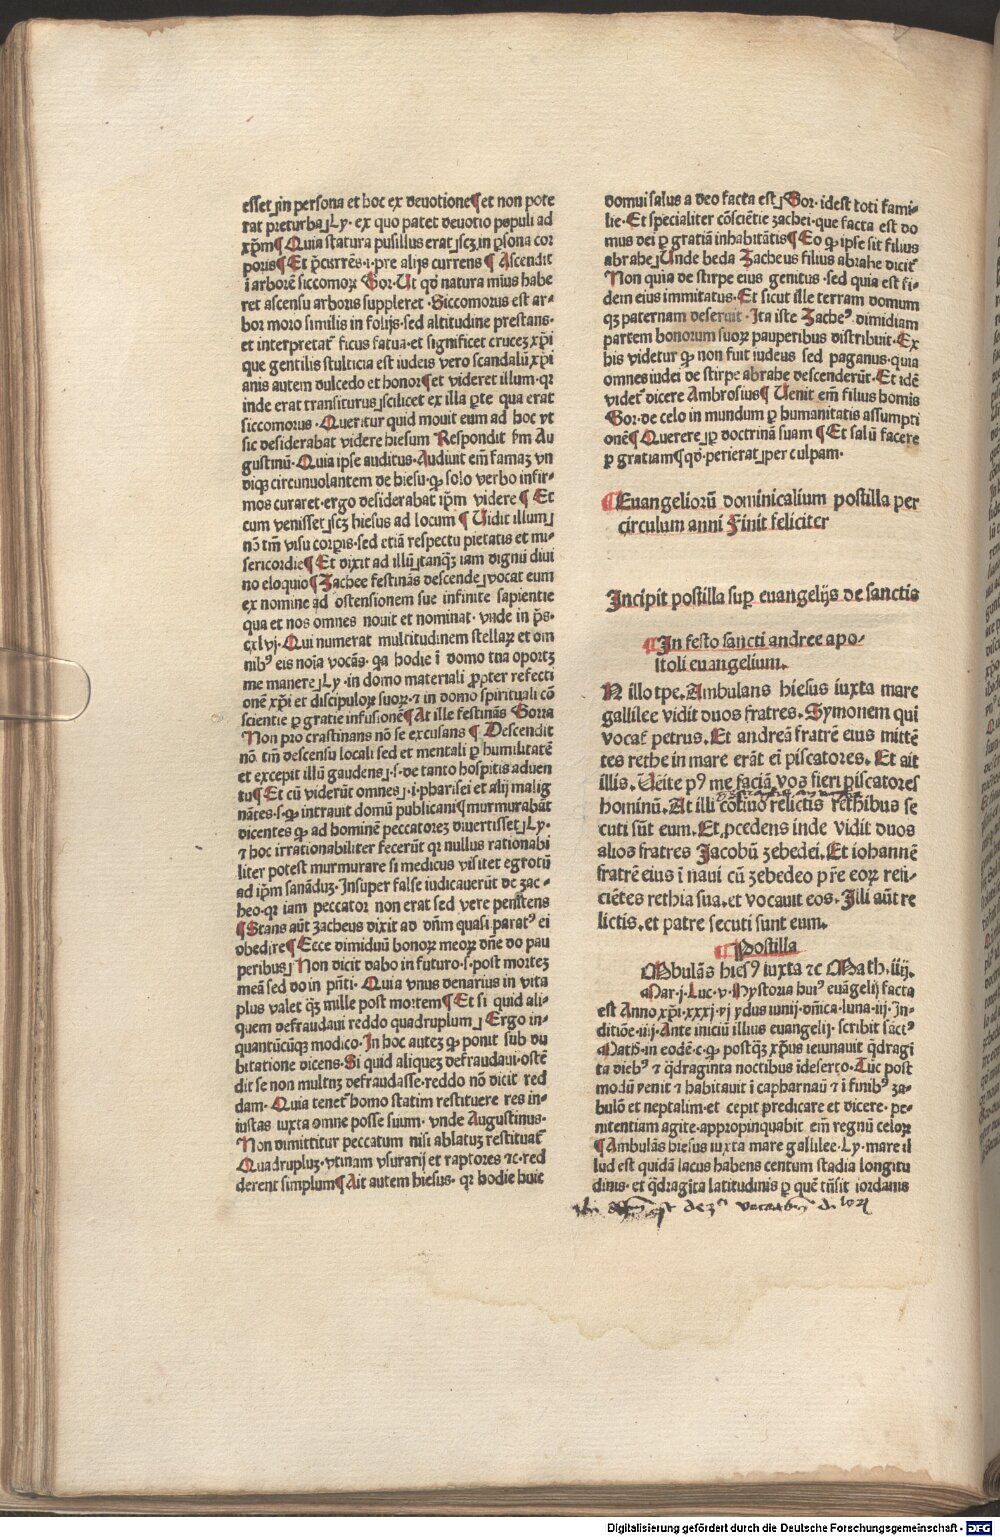 esset ⌋in persona et hoc ex deuotione¶et non pote
rat preturba⌋Ly· ex quo patet deuotio populi ad
xp̄m¶Quia statura pusillus erat⌋scꝫ in ꝑsona cor
poris¶Et p̄currēs·i·pre alijs currens ¶ Ascendit
ī arborē siccomoꝝ Gor·Ut qd̄ natura min⁹ habe
ret ascensu arboris suppleret ·Siccomorus est ar-
bor moro similis in folijs·sed altitudine prestans·
et interpretat᷑ ficus fatua·et significet crucez xp̄i
que gentilis stulticia est iudeis vero scandalū xp̄i
anis autem dulcedo et honor¶et videret illum·qꝛ
inde erat transiturus⌋scilicet ex illa ꝑte qua erat
siccomorus ·Queritur quid mouit eum ad hoc vt
sic desiderabat videre hiesum Respondit ẜm Au
gustinū·Quia ipse auditus·Audiuit em̄ famaꝫ vn
diqꝫ circunuolantem de hiesu·ꝙ solo verbo infir-
mos curaret·ergo desiderabat ip̄m videre ¶ Et
cum venisset⌋scꝫ hiesus ad locum ¶ Vidit illum⌋
nō tm̄ visu corꝑis·sed etiā respectu pietatis et mi-
sericordie¶Et dixit ad illū⌋tanqꝫ iam dignū diui
no eloquio¶Zachee festinās descende⌋vocat eum
ex nomine ad ostensionem sue infinite sapientie
qua et nos omnes nouit et nominat· vnde in p̄s·
cxlvj·Qui numerat multitudinem stellaꝝ et om
nib⁹ eis noīa vocās· qa hodie ī domo tua oportꝫ
me manere⌋Ly ·in domo materiali ꝓpter refecti
onē xp̄i et discipuloꝝ suoꝝ·⁊ in domo spirituali cō
scientie ꝑ gratie infusionē¶At ille festinās Gorra
Non pro crastinans nō se excusans ¶ Descendit
nō tm̄ descensu locali sed et mentali ꝑ humilitatē
et excepit illū gaudens⌋·s·de tanto hospitis aduen
tu¶Et cū viderūt omnes⌋·i·pharisei et alij malig
nātes·s·ꝙ intrauit domū publicani¶murmurabāt
dicentes ꝙ ad hominē peccatoreꝫ diuertisset⌋Ly·
⁊ hoc irrationabiliter fecerūt qꝛ nullus rationabi
liter potest murmurare si medicus visitet egrotū
ad ip̄m sanāduꝫ·Insuper false iudicauerūt de zac-
heo·qꝛ iam peccator non erat sed vere penitens
¶Stans aūt zacheus dixit ad dn̄m quasi parat⁹ ei
obedire¶Ecce dimidiuū honoꝝ meoꝝ dn̄e do pau
peribus⌋Non dicit dabo in futuro·s·post morteꝫ
meā sed do in pn̄ti· Quia vnus denarius in vita
plus valet qꝫ mille post mortem¶Et si quid ali-
quem defraudaui reddo quadruplum⌋ Ergo in-
quantūcūqꝫ modico·In hoc auteꝫ ꝙ ponit sub du
bitatione dicens·Si quid aliqueꝫ defraudaui·ostē
dit se non multuꝫ defraudasse·reddo nō dicit red
dam· Quia tenet᷑ homo statim restituere res in-
iustas iuxta omne posse suum· vnde Augustinus·
Non dimittitur peccatum nisi ablatuꝫ restituat᷑
Quadrupluꝫ·vtinam vsurarij et raptores ⁊c·red
derent simplum¶Ait autem hiesus· qꝛ hodie huic
domui salus a deo facta est⌋Gor·idest toti fami-
lie·Et specialiter cōsciētie zachei·que facta est do
mus dei ꝑ gratiā inhabitātis¶Eo ꝙ ipse sit filius
abrahe⌋Unde beda Zacheus filius abrahe dicit᷑
Non quia de stirpe eius genitus ·sed quia est fi-
dein eius immitatus·Et sicut ille terram domum
qꝫ paternam deseruit ·Ita iste Zache⁹ dimidiam
partem honorum suoꝝ pauperibus distribuit·Ex
his videtur ꝙ non fuit iudeus sed paganus·quia
omnes iudei de stirpe abrahe descenderūt·Et idē
videt᷑ dicere Ambrosius¶ Uenit em̄ filius homis
Gor·de celo in mundum ꝑ humanitatis assumpti
onē¶Querere⌋ꝑ doctrinā suam ¶Et salū facere
ꝑ gratiam¶qd̄·perierat⌋per culpam·
¶Euangeliorū dominicalium postilla per
circulum anni Finit feliciter
Incipit postilla suꝑ euangelijs de sanctis
¶In festo sancti andree apo-
stoli euangelium.
N illo tpe.Ambulans hiesus iuxta mare
gallilee vidit duos fratres.Symonem qui
vocat᷑ petrus.Et andreā fratrē eius mittē
tes rethe in mare erāt ei piscatores. Et ait
illis. Ueite p⁹ me faciā vos fieri piscatores
hominū.At illi cōtinuo relictis rethibus se
cuti sūt eum.Et ꝓcedens inde vidit duos
alios fratres Jacobū zebedei.Et iohannē
fratrē eius ī naui cū zebedeo pr̄e eoꝝ reli-
ciētes rethia sua.et vocauit eos.Illi aūt re
lictis.et patre secuti sunt eum.
¶Postilla
AMbulās hies⁹ iuxta ⁊c Math.iiij.
Mar·j·Luc·v·Hystoria hui⁹ euāgelij facta
est Anno xp̄i·xxxj·vj ydus iunij·dn̄ica·luna·iij·In-
ditiōe·iiij·Ante iniciū illius euangelij· scribit sāct⁹
Math·in eodē·c·ꝙ postqꝫ xp̄us ieiunauit q̄dragī
ta dieb⁹ ⁊ q̄draginta noctibus īdeserto·Tūc post
modū venit ⁊ habitauit ī capharnaū ⁊ ī finib⁹ za-
bulō et neptalim·et cepit predicare et dicere· pe-
nitentiam agite·appropinquabit em̄ regnū celoꝝ
¶Ambulās hiesus iuxta mare gallilee·Ly·mare il
lud est quidā lacus habens centum stadia longitu
dinis· et q̄dragīta latitudinis ꝑ quē trāsit iordanis
Digitalisierung gefördert durch die Deutsche Forschungsgemeinschaft - DFG